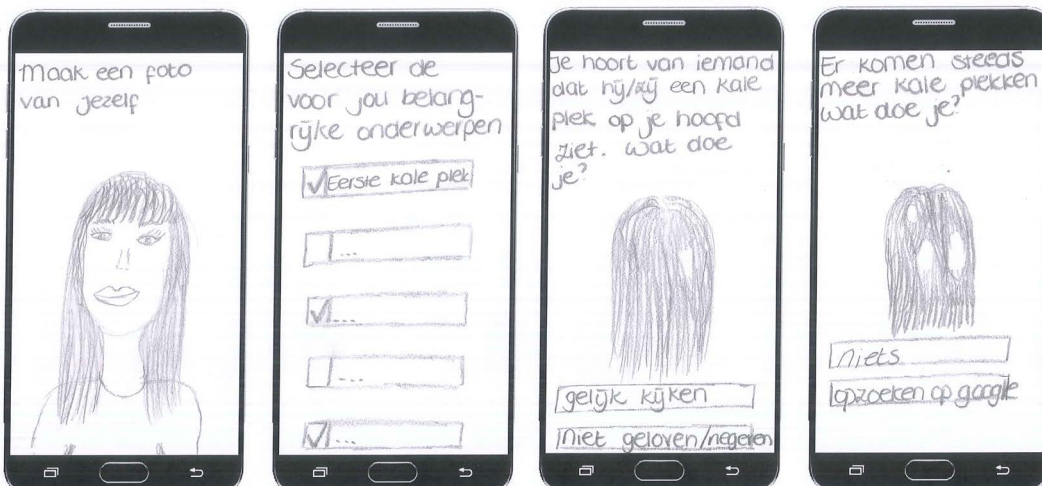 Maak een foto
van jezelf
Selecteer de
voor jou belang-
rijke onderwerpen
Eerste kale plek
...
...
...
...
Je hoort van iemand
dat hij/zij een kale
plek op je hoofd
ziet. wat doe
je?
gelijk kijken
niet geloven/negeren
Er komen steeds
meer kale plekken
wat doe je?
niets
opzoeken op google